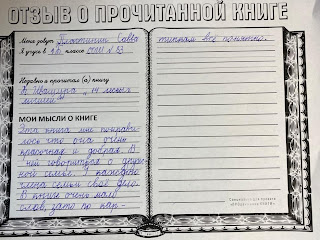 ОТЗЫВ О ПРОЧИТАННОЙ КНИГЕ
Меня зовут Пластинин Савва
Я учусь в 1 классе СОШ № 53
Недавно я прочитал (а) книгу
К. Швашира „14 лесных
мышей"
МОИ МЫСЛИ О КНИГЕ
Эта книга мне понрави-
лось что она очень
красочная и добрая. В
ней говорится о друж-
ной семье. У каждого
члена семьи своё дело.
В книге очень мало
слов, зато по кар-
тинкам всё понятно.